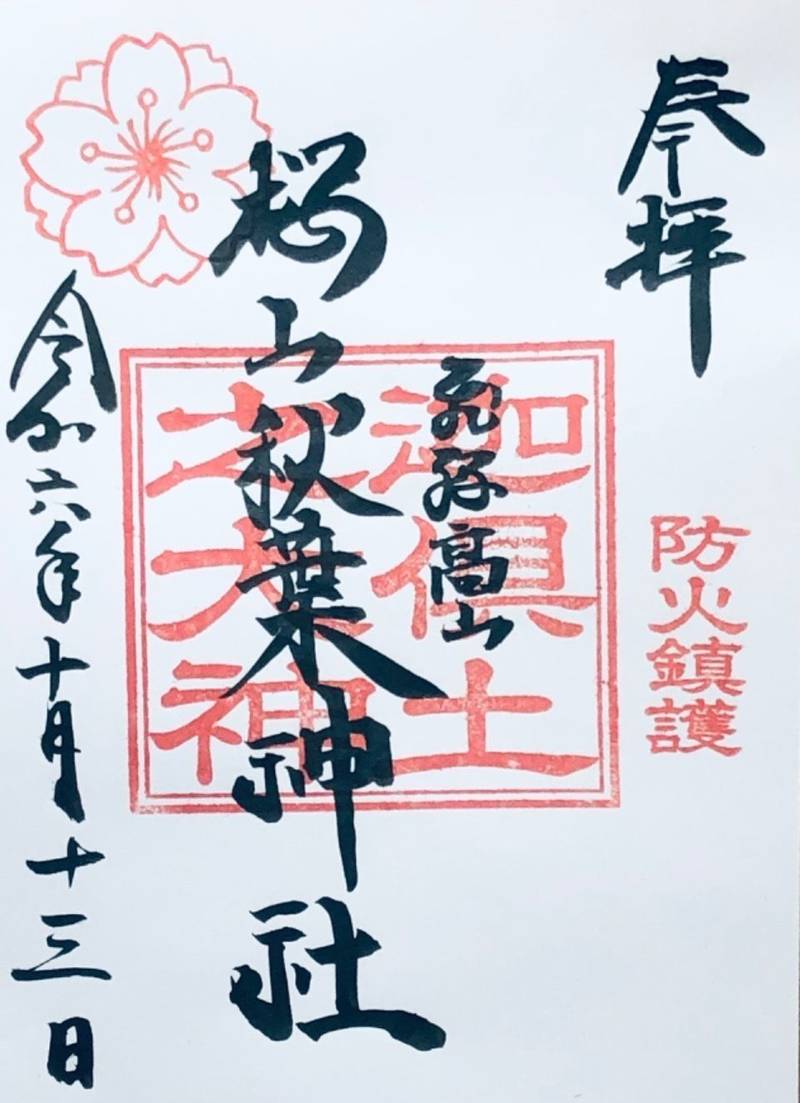 奉拝
防火鎮護
飛騨高山
迦倶土
之大神
桜山秋葉神社
令和六年十月十三日